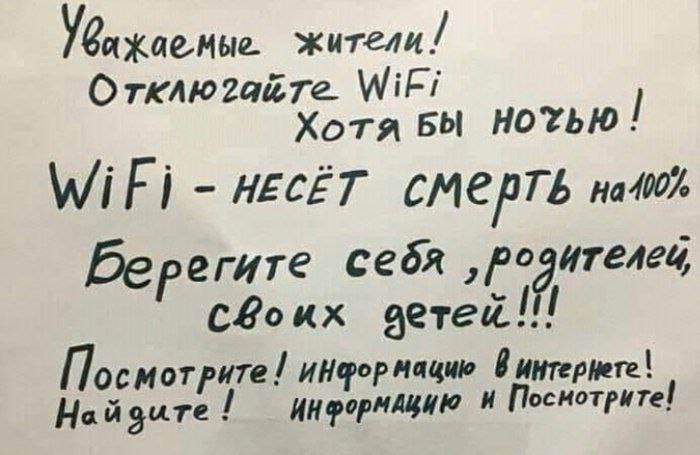 Уважаемые жители!
Отключайте WiFi
Хотя бы ночью!
WiFi - несёт смерть на 100%
Берегите себя, родителей,
своих детей!!!
Посмотрите! информацию в интернете!
Найдите! информацию и Посмотрите!